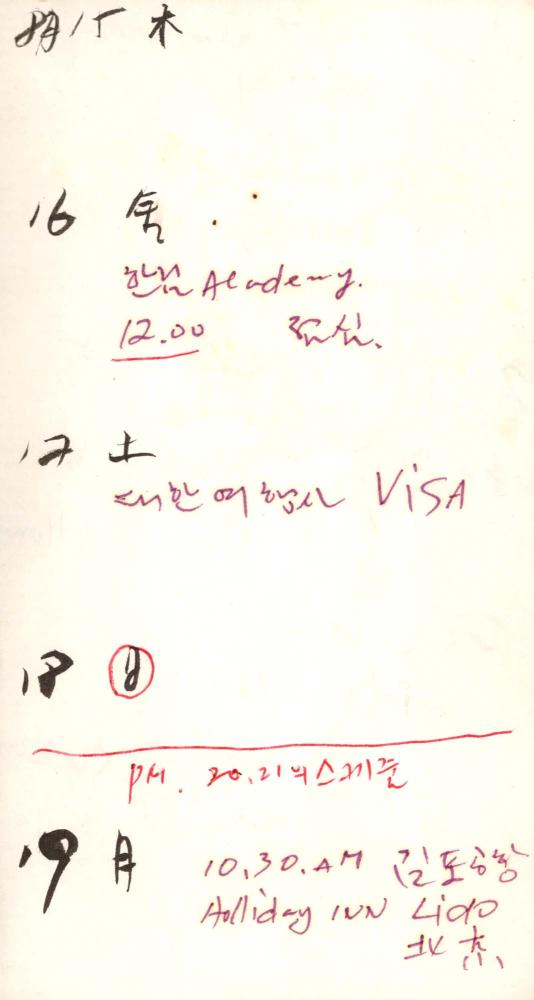 8月 15 木
16 金
한림 Academy.
12.00 점심.
17 土
대한여행사 VISA
18 日
PM. 20.21의 스케줄
19 月
10.30.AM 김포공항
Holliday INN Lido
北京